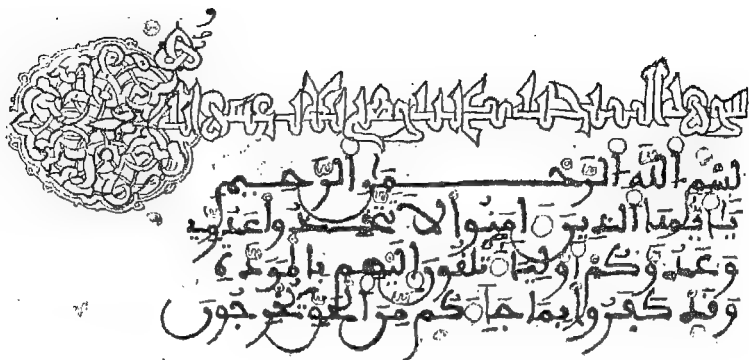 سورة
بِسْمِ اللَّهِ الرَّحْمَٰنِ الرَّحِيمِ
يَا أَيُّهَا الَّذِينَ ءامَنُوا لَا تَتَّخِذُوا عَدُوِّي
وَعَدُوَّكُمْ أَوْلِيَاءَ تُلْقُونَ إِلَيْهِم بِالْمَوَدَّةِ
وَقَدْ كَفَرُوا بِمَا جَاءَكُم مِّنَ الْحَقِّ يُخْرِجُونَ